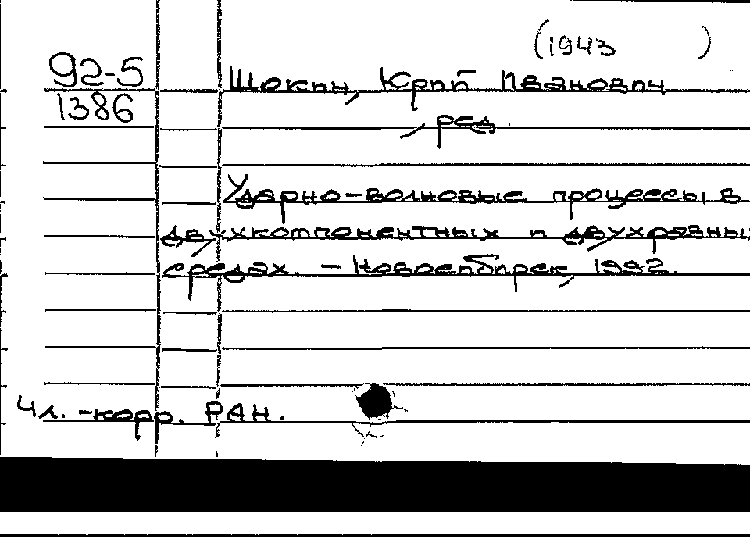 (1943 )
92-5
1386
Шокин, Юрий Иванович
, ред
Ударно-волновые процессы в
двухкомпонентных и двухфазных
средах. - Новосибирск, 1992.
Чл. -корр. РАН.